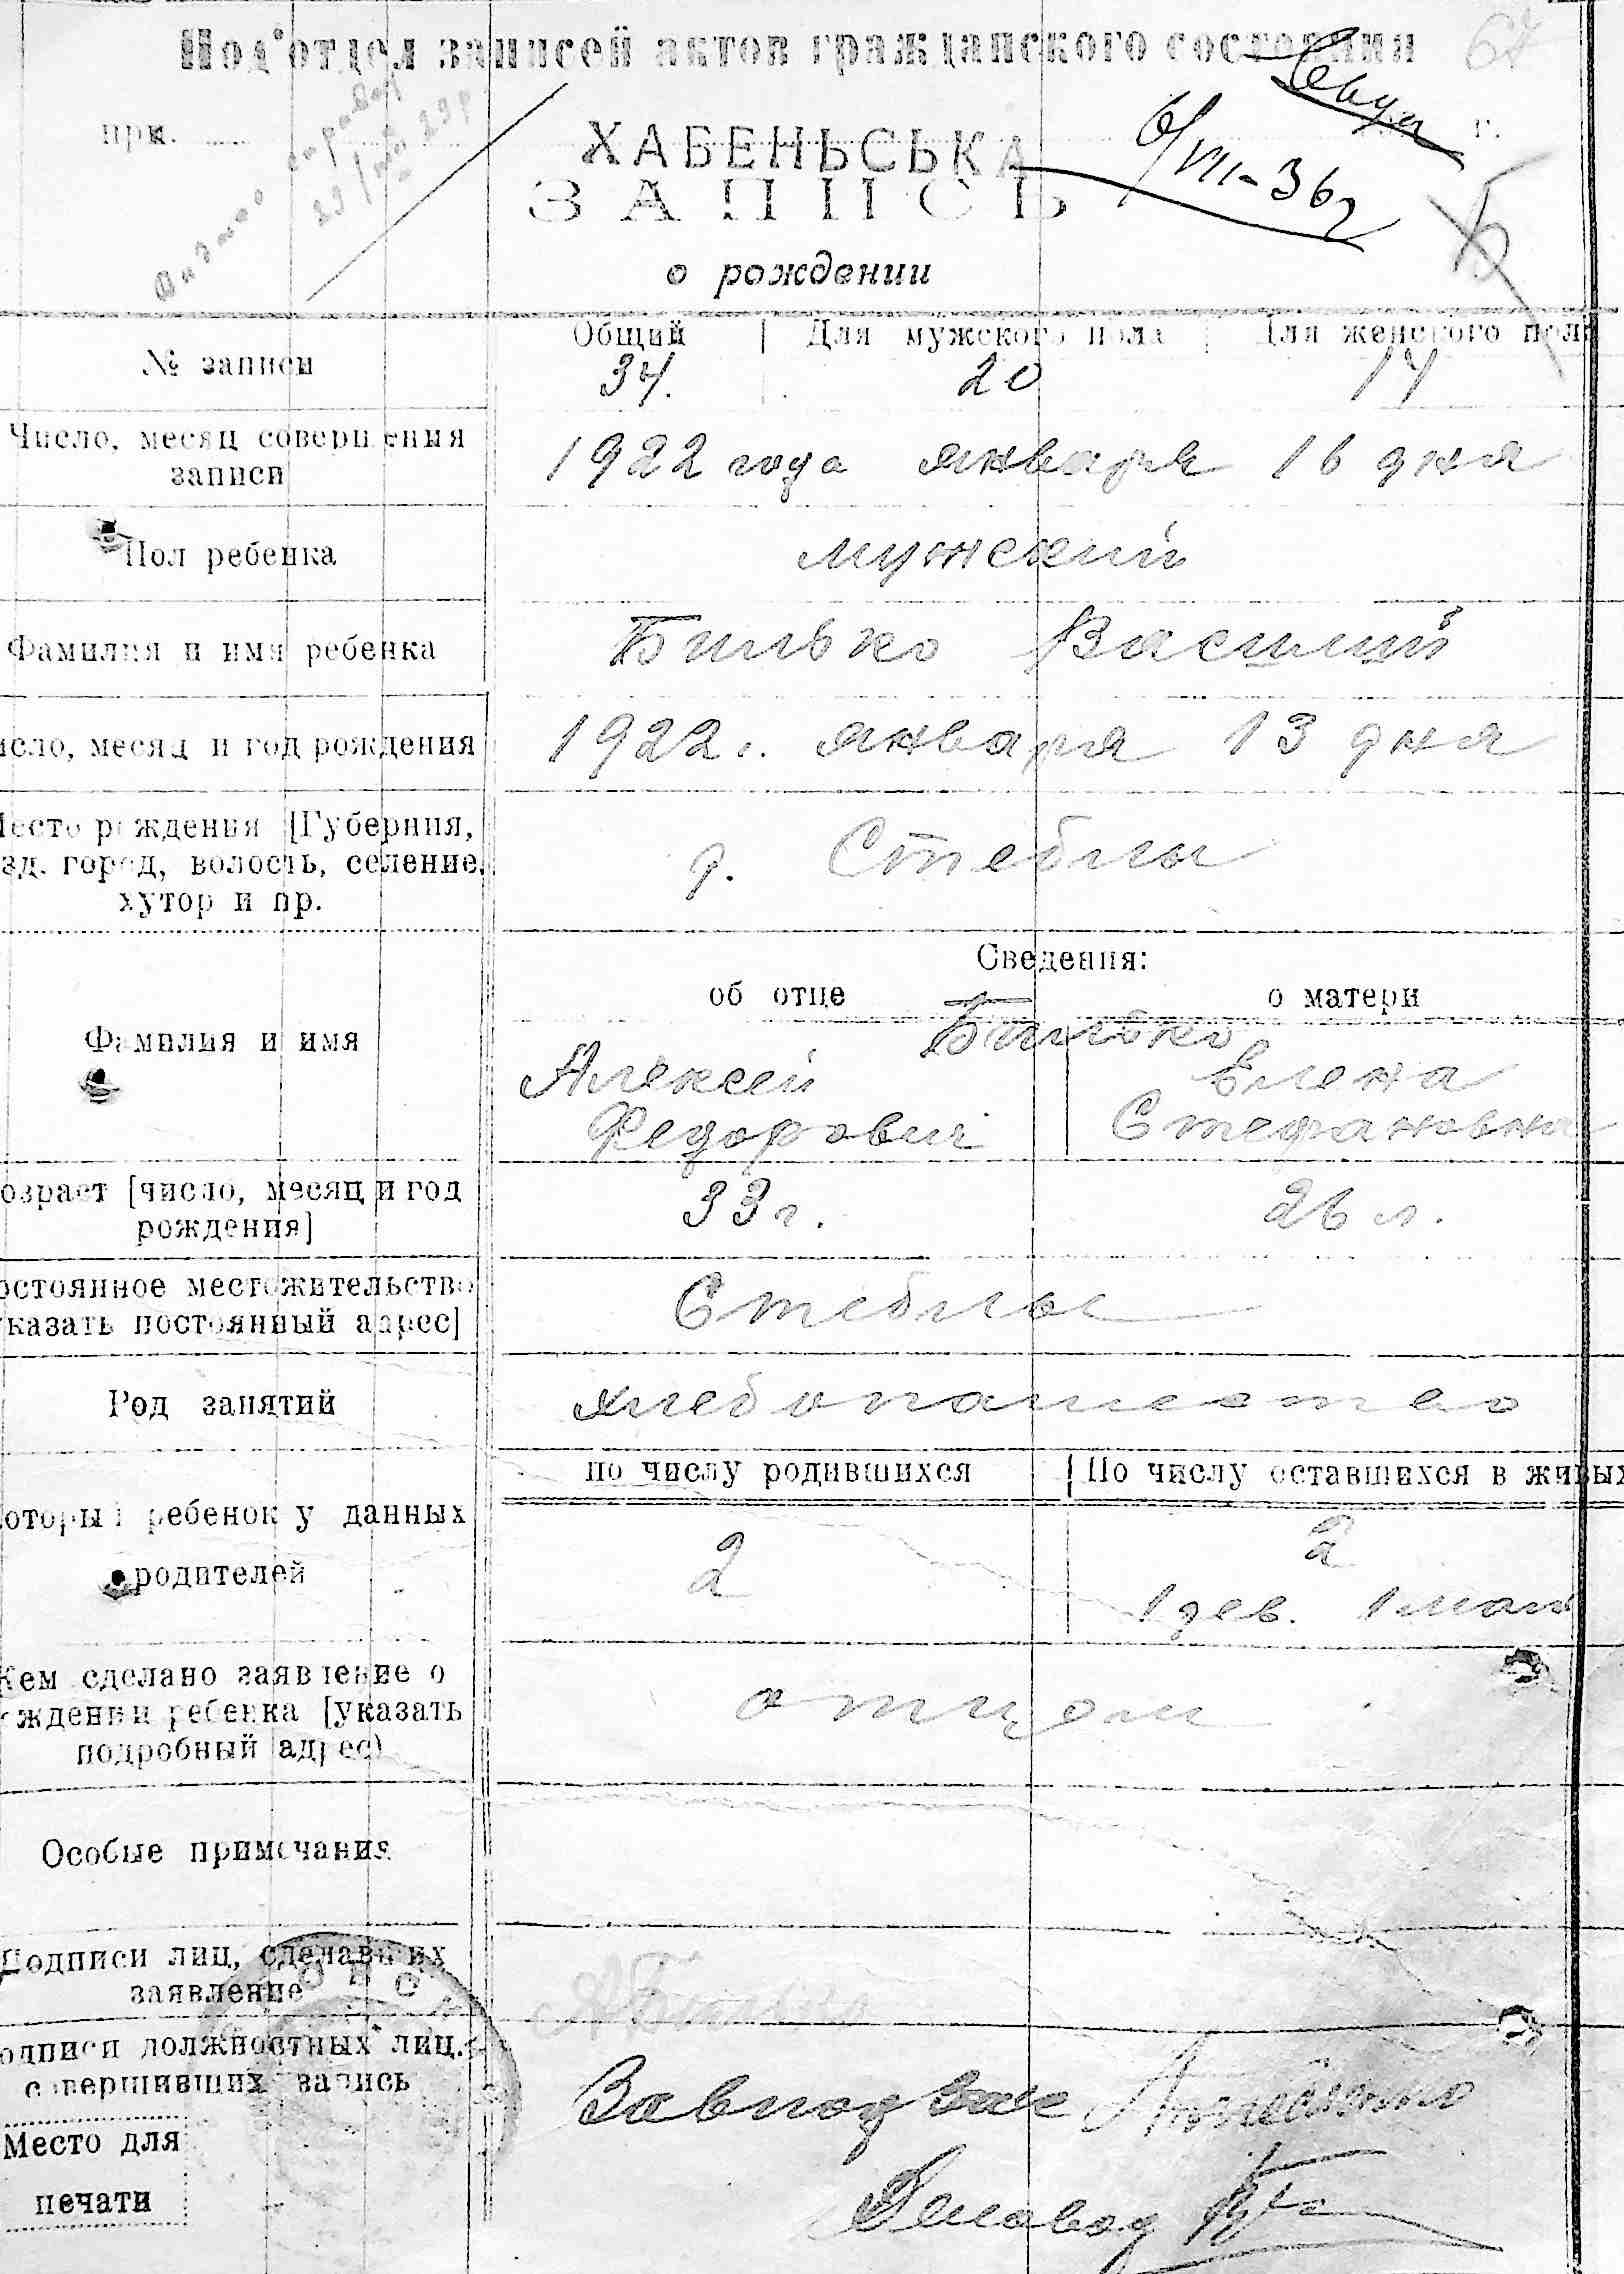 Под'отдел записей актов гражданского состояния
67
при.
г.
ХАБЕНЬСЬКА
6/VIII-36г
ЗАПИСЬ
о рождении
Общий | Для мужского пола | Для женского пола
№ записи 34. 20 14
Число, месяц совершения
записи
1922 года января 16 дня
Пол ребенка мужский
Фамилия и имя ребенка Билько Василий
исло, месяц и год рождения 1922 г. января 13 дня
Место рождения [Губерния,
зд. город, волость, селение,
хутор и пр.
д. Стеблы
Сведения:
об отце о матери
Фамилия и имя
Билько
Алексей Елена
Федорович Стефановна
озраст [число, месяц и год
рождения]
33 г. 26 л.
остоянное местожительство
указать постоянный адрес]
Стеблы
Род занятий хлебопашество
по числу родившихся | По числу оставшихся в живых
оторый ребенок у данных
родителей
2 2
1 дев. 1 мал
Кем сделано заявление о
ождении ребенка [указать
подробный адрес)
отцом
Особые примечания
Подписи лиц, сделавших
заявление
А Билько
одписи должностных лиц.
совершивших запись
Завподзагс
Место для
печати
Деловод